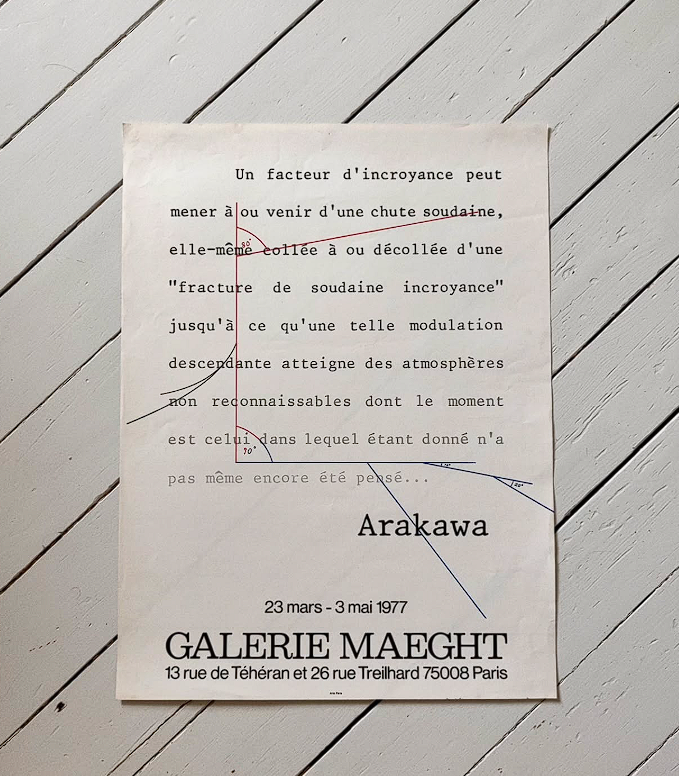 Un facteur d'incroyance peut
mener à ou venir d'une chute soudaine,
elle-même collée à ou décollée d'une
"fracture de soudaine incroyance"
jusqu'à ce qu'une telle modulation
descendante atteigne des atmosphères
non reconnaissables dont le moment
est celui dans lequel étant donné n'a
pas même encore été pensé...
Arakawa
23 mars - 3 mai 1977
GALERIE MAEGHT
13 rue de Téhéran et 26 rue Treilhard 75008 Paris